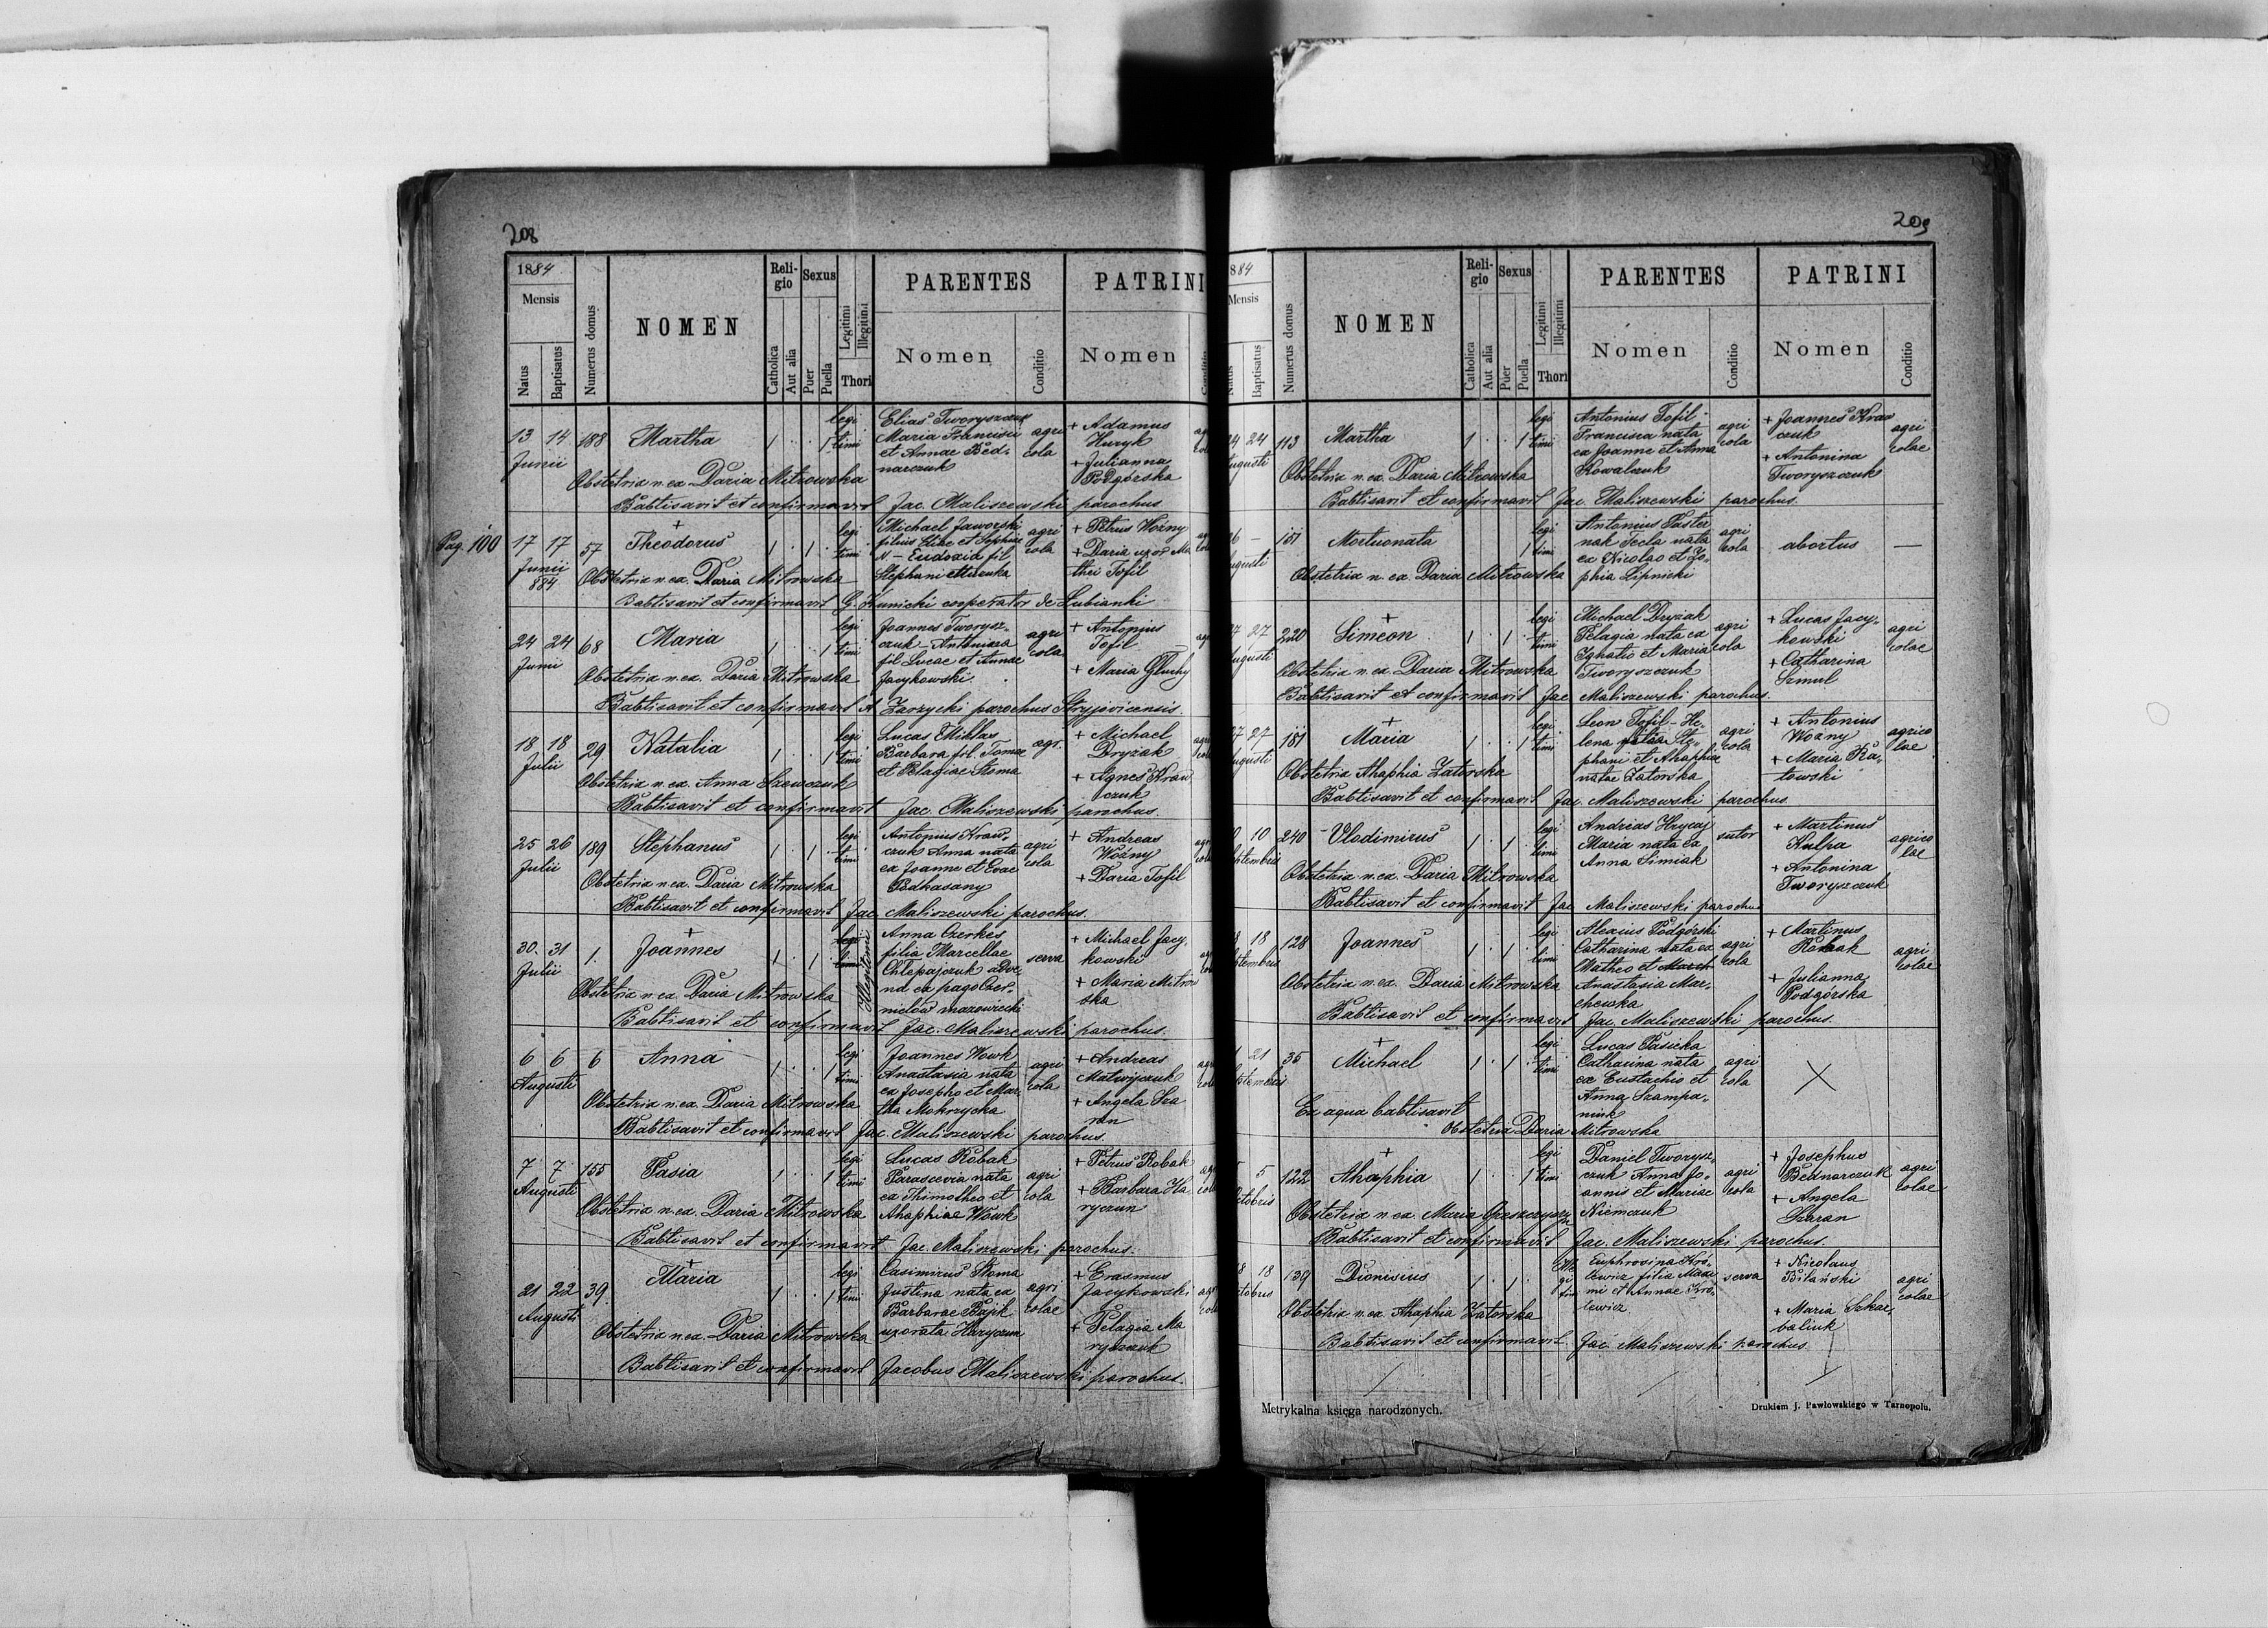 208
1884
Mensis
Natus
Baptisatus
Numerus domus
NOMEN
Religio
Catholica
Aut alia
Sexus
Puer
Puella
Legitimi
Illegitimi
Thori
PARENTES
Nomen
Conditio
PATRINI
Nomen
13 14 188 Martha 1 . . 1 legi timi
Junii
Elias Tworyszczuk
Maria Francisci
et Annae Bed-
narczuk
agri
cola
+ Adamus
Huryk
+ Julianna
Podgórska
Obstetrix n. ex. Daria Mitrowska
Babtisavit et confirmavit Jac. Maliszewski parochus
Pag. 100
17 17 57 Theodorus 1 . 1 . legi timi
Junii
884
Michael Jaworski
filius Eliae et Sophiae
N – Eudoxia fil
Stephani
agri
cola
+ Petrus Wozny
+ Daria uxor Ma
thei Tofil
Obstetrix n. ex. Daria Mitrowska
Babtisavit et confirmavit G. Kunicki cooperator de Lubianki
24 24 68 Maria 1 . . 1 legi timi
Junii
Joannes Tworysz-
czuk – Antonina
fil Lucae et Annae
Jacykowski
agri
cola
+ Antonius
Tofil
+ Maria Gluchy
Obstetrix n. ex. Daria Mitrowska
Babtisavit et confirmavit A Zarzycki parochus Stryjivicensis
18 18 29 Natalia 1 . . 1 legi timi
Julii
Lucas Miklas
Barbara fil. Tomae
et Pelagiae Stoma
agr.
+ Michael
Dryzak
+ Agnes Kraw
czuk
Obstetrix n. ex. Anna Szewczuk
Babtisavit et confirmavit Jac. Maliszewski parochus.
25 26 189 Stephanus 1 . 1 . legi timi
Julii
Antonius Kraw
czuk Anna nata
ex Joanne et Evae
Podhasany
agri
cola
+ Andreas
Wózny
+ Daria Tofil
Obstetrix n. ex. Daria Mitrowska
Babtisavit et confirmavit Jac. Maliszewski parochus.
30. 31 1. Joannes 1 . 1 . legi timi Illegitimi
Julii
Anna Czerkes
filia Marcellae
Chlepajczuk adve-
na ex pago Czer-
nielów mazowiecki
serva
+ Michael Jacy-
kowski
+ Maria Mitrow
ska
Obstetrix n. ex. Daria Mitrowska
Babtisavit et confirmavit Jac. Maliszewski parochus.
6 6 6 Anna 1 . . 1 legi timi
Augusti
Joannes Wowk
Anastasia nata
ex Josepho et Mar-
tha Mokrzycka
agri
cola
+ Andreas
Matwijczuk
+ Angela Sza
ran
Obstetrix n. ex. Daria Mitrowska
Babtisavit et confirmavit Jac. Maliszewski parochus.
7 7 155 Pasia 1 . . 1 legi timi
Augusti
Lucas Robak
Parascevia nata
ex Thimotheo et
Ahaphiae Wowk
agri
cola
+ Petrus Robak
+ Barbara Ha
ryczun
Obstetrix n. ex. Daria Mitrowska
Babtisavit et confirmavit Jac. Maliszewski parochus.
21 22 39. Maria 1 . . 1 legi timi
Augusti
Casimirus Stoma
Justina nata ex
Barbarae Bajik
uxorata Haryczun
agri
colae
+ Erasmus
Jacykowski
+ Pelagia Ma
ryszczuk
Obstetrix n. ex. Daria Mitrowska
Babtisavit et confirmavit Jacobus Maliszewski parochus.
209
884
Mensis
Natus
Baptisatus
Numerus domus
NOMEN
Religio
Catholica
Aut alia
Sexus
Puer
Puella
Legitimi
Illegitimi
Thori
PARENTES
Nomen
Conditio
PATRINI
Nomen
Conditio
24 24 113 Martha 1 . . 1 legi timi
Augusti
Antonius Tofil –
Francisca nata
ex Joanne et Anna
Kowalczuk
agri
cola
+ Joannes Kraw
czuk
+ Antonina
Tworyszczuk
agri
colae
Obstetrix n. ex. Daria Mitrowska
Babtisavit et confirmavit Jac. Maliszewski parochus.
26 – 151 Mortuonata 1 legi timi
Augusti
Antonius Paster
nak Tecla nata
ex Nicolao et Zo-
phia Lipnicki
agri
cola
abortus —
Obstetrix n. ex. Daria Mitrowska
27 27 220 Simeon 1 . 1 . legi timi
Augusti
Michael Dryzak
Pelagia nata ex
Ignatio et Maria
Tworyszczuk
agri
cola
+ Lucas Jacy-
kowski
+ Catharina
Szmul
agri
colae
Obstetrix n. ex. Daria Mitrowska
Babtisavit et confirmavit Jac Maliszewski parochus.
27 27 181 Maria 1 . . 1 legi timi
Augusti
Leon Tofil – He
lena filia Ste-
phani et Ahaphiae
natae Zatorska
agri
cola
+ Antonius
Wozny
+ Maria Ra-
towski
agrico
lae
Obstetrix Ahaphia Zatorska
Babtisavit et confirmavit Jac. Maliszewski parochus
10 240 Vlodimirus 1 . 1 . legi timi
Septembris
Andreas Hrycaj
Maria nata ex
Anna Simiak
sutor
+ Martinus
Kulpa
+ Antonina
Tworyszczuk
agrico
lae
Obstetrix n. ex. Daria Mitrowska
Babtisavit et confirmavit Jac Maliszewski parochus
18 128 Joannes 1 . 1 . legi timi
Septembris
Alexius Podgórski
Catharina nata ex
Matheo et March
Anastasia Mar-
chewka
agri
cola
+ Martinus
Robak
+ Julianna
Podgórska
agri
colae
Obstetrix n. ex. Daria Mitrowska
Babtisavit et confirmavit Jac. Maliszewski parochus.
21 35 Michael 1 . 1 . legi timi
Septembris
Lucas Pasicka
Catharina nata
ex Eustachio et
Anna Szampa-
niuk
agri
cola
Ex aqua babtisavit
Obstetrix Daria Mitrowska
5 5 122 Ahaphia 1 . . 1 legi timi
Octobris
Daniel Tworysz-
czuk Anna Jo-
annis et Mariae
Niemczuk
agri
cola
+ Josephus
Bednarczuk
+ Angela
Szaran
agri
colae
Obstetrix n. ex. Maria
Babtisavit et confirmavit Jac. Maliszewski parochus.
18 18 139 Dionisius 1 . 1 . Ille gi tim
Octobris
Euphrovina Kró-
lewicz filia Maxi
mi et Annae Kró-
lewicz
serva
+ Nicolaus
Bilański
+ Maria Szkae
baliuk
agri
colae
Obstetrix n. ex. Ahaphia Zatorska
Babtisavit et confirmavit Jac. Maliszewski parochus
Metrykalna księga narodzonych.
Drukiem J. Pawłowskiego w Tarnopolu.